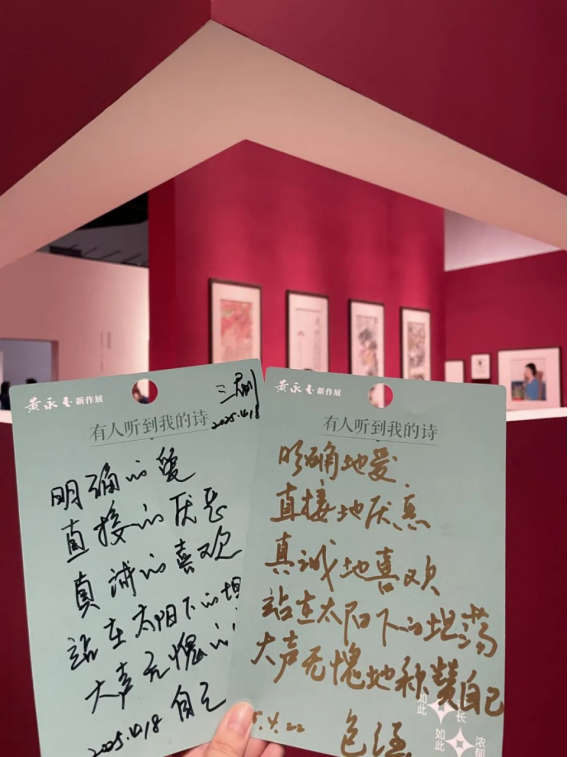 黄永玉新作展
有人听到我的诗
2025.10.18
明确的爱
直接的厌恶
真诚的喜欢
站在太阳下的坦
大声无愧的
自己
2025.10.18
黄永玉新作展
有人听到我的诗
明确地爱
直接地厌恶
真诚地喜欢
站在太阳下的坦荡
大声无愧地称赞自己
5.4.22
如此
长
如此
浓郁